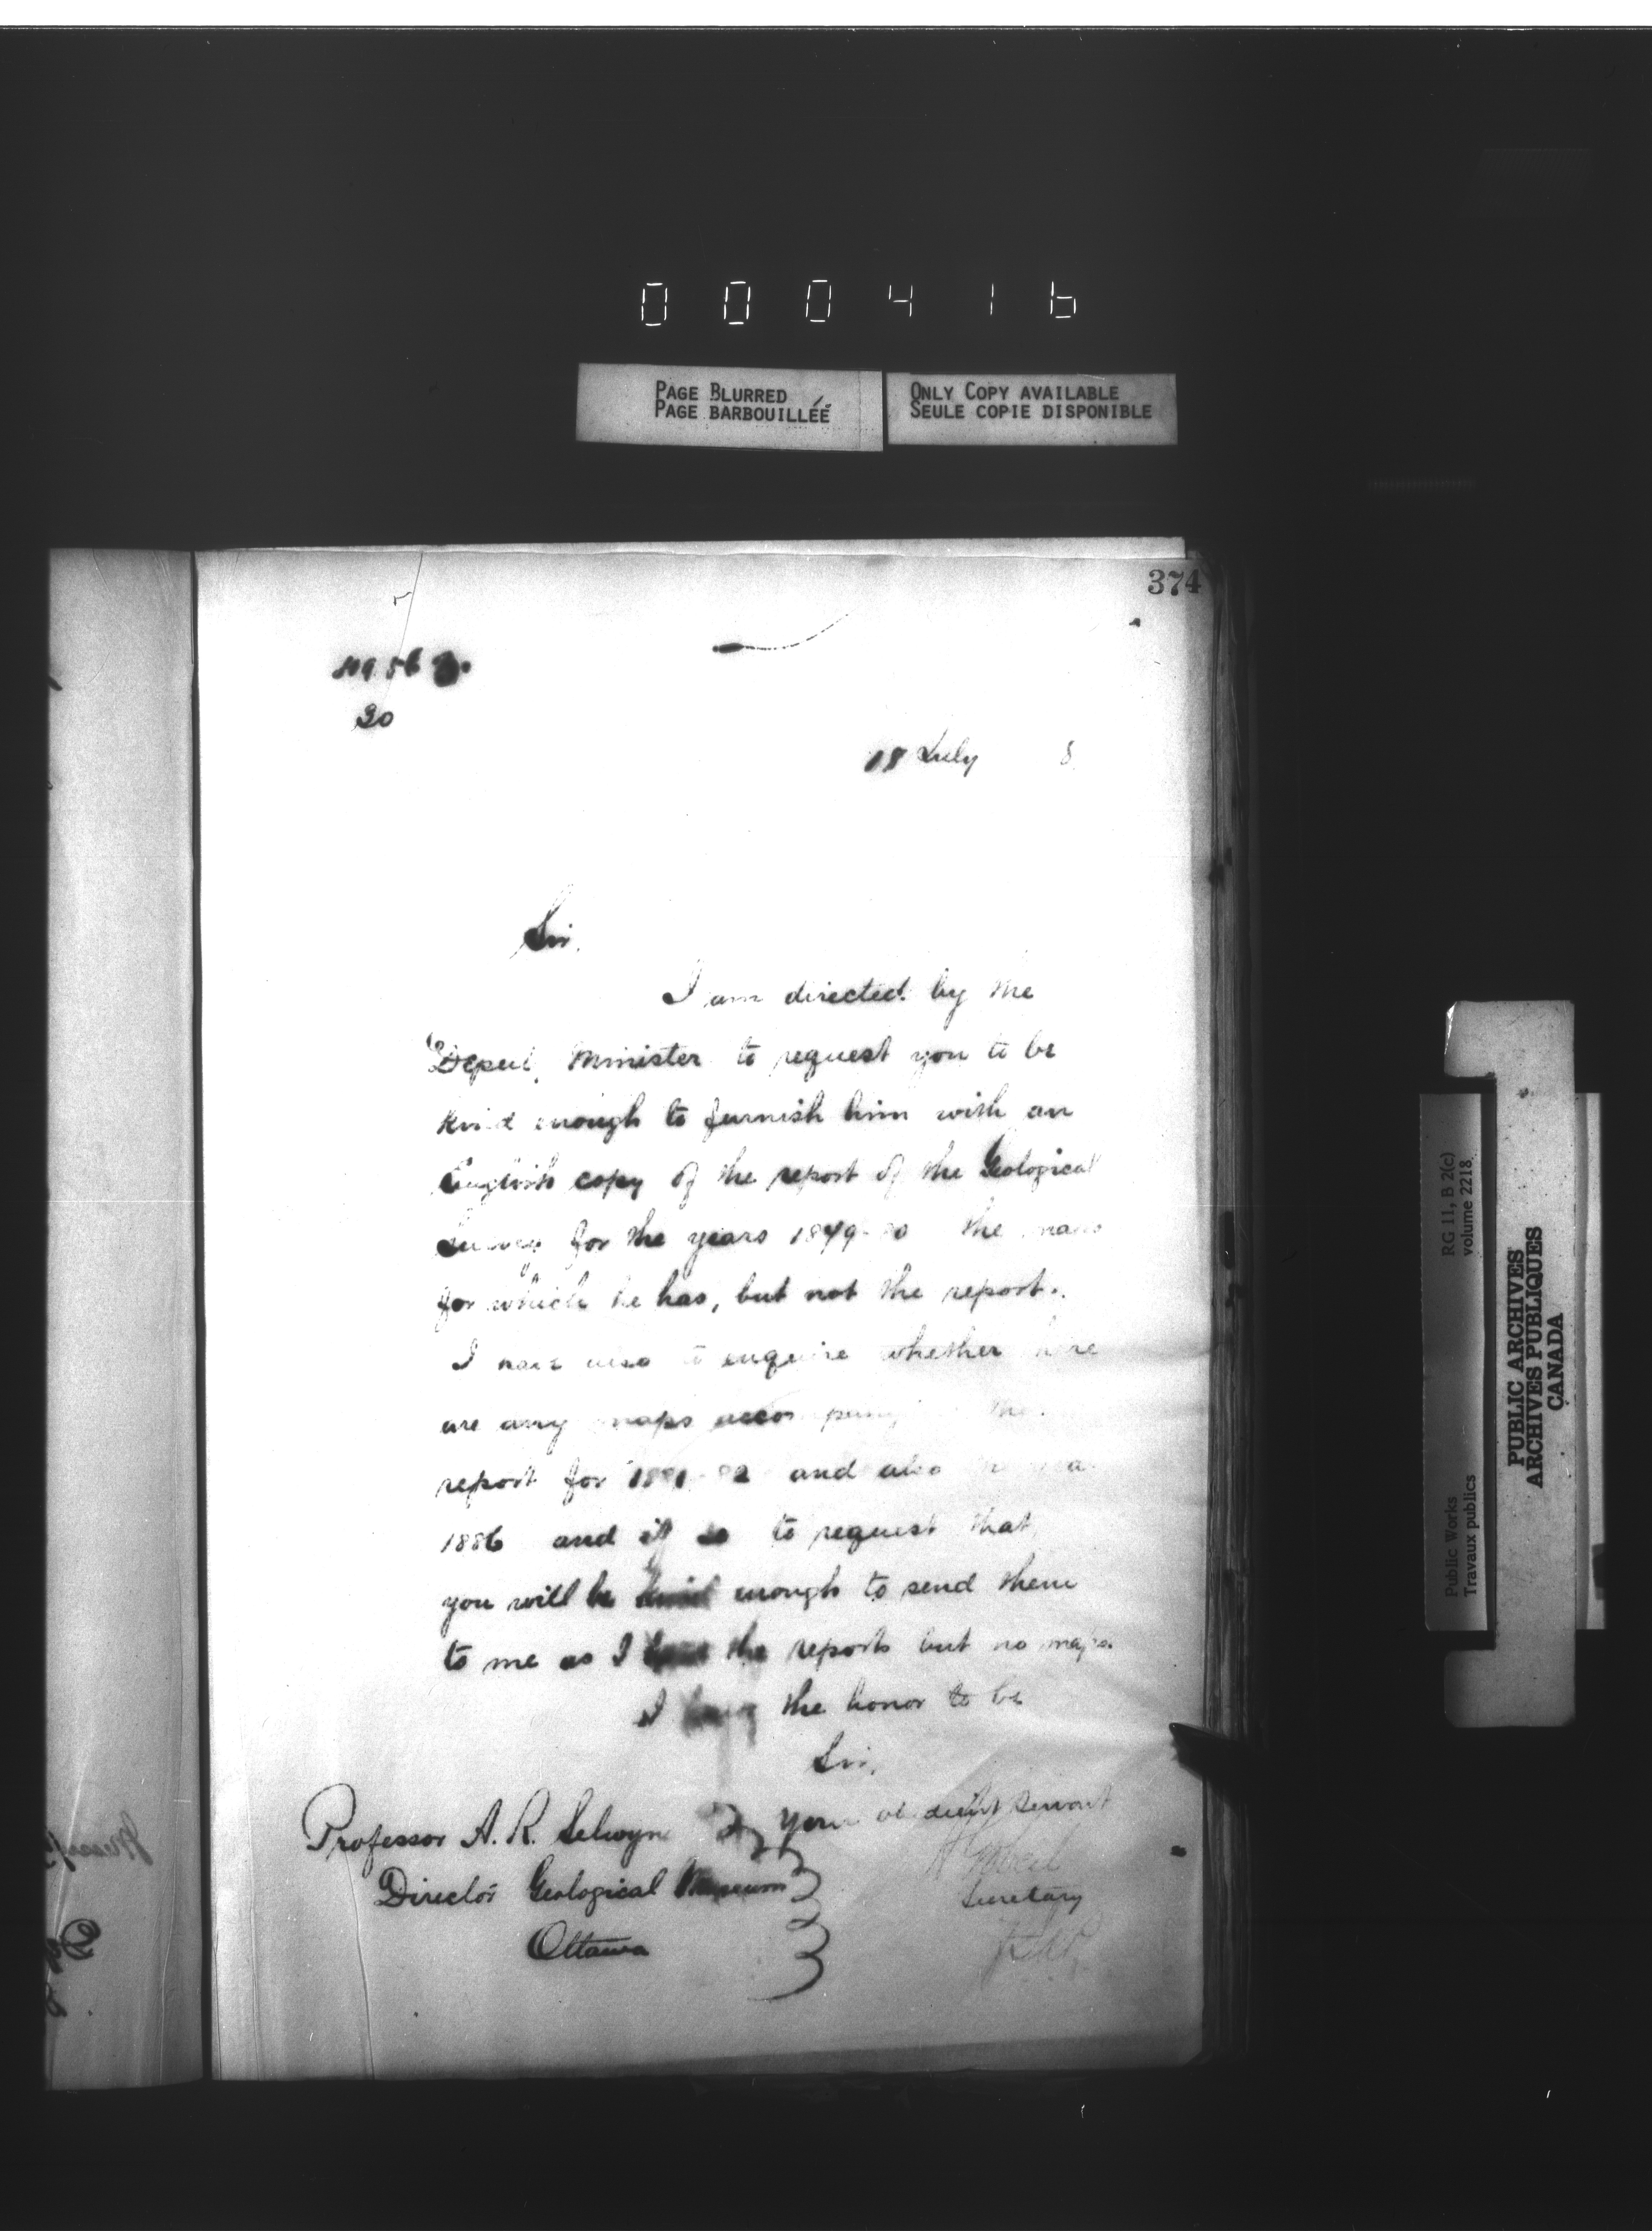 000416
PAGE BLURRED
PAGE BARBOUILLÉE
ONLY COPY AVAILABLE
SEULE COPIE DISPONIBLE
374
30
18 July 8
Sir,
I am directed by the
Deput Minister to request you to be
kind enough to furnish him with an
English copy of the report of the Geological
Survey for the years 1879-80 the maps
for which he has, but not the report.
I have also to enquire whether there
are any maps accompany the
report for 1881-82 and also
1886 and if so to request that
you will be kind enough to send them
to me as I have the reports but no maps.
I have the honor to be
Sir,
Your obedient servant
A Gobeil
Secretary
Professor A. R. Selwyn
Director Geological Museum
Ottawa
Public Works
Travaux publics
RG 11, B 2(c)
volume 2218
PUBLIC ARCHIVES
ARCHIVES PUBLIQUES
CANADA